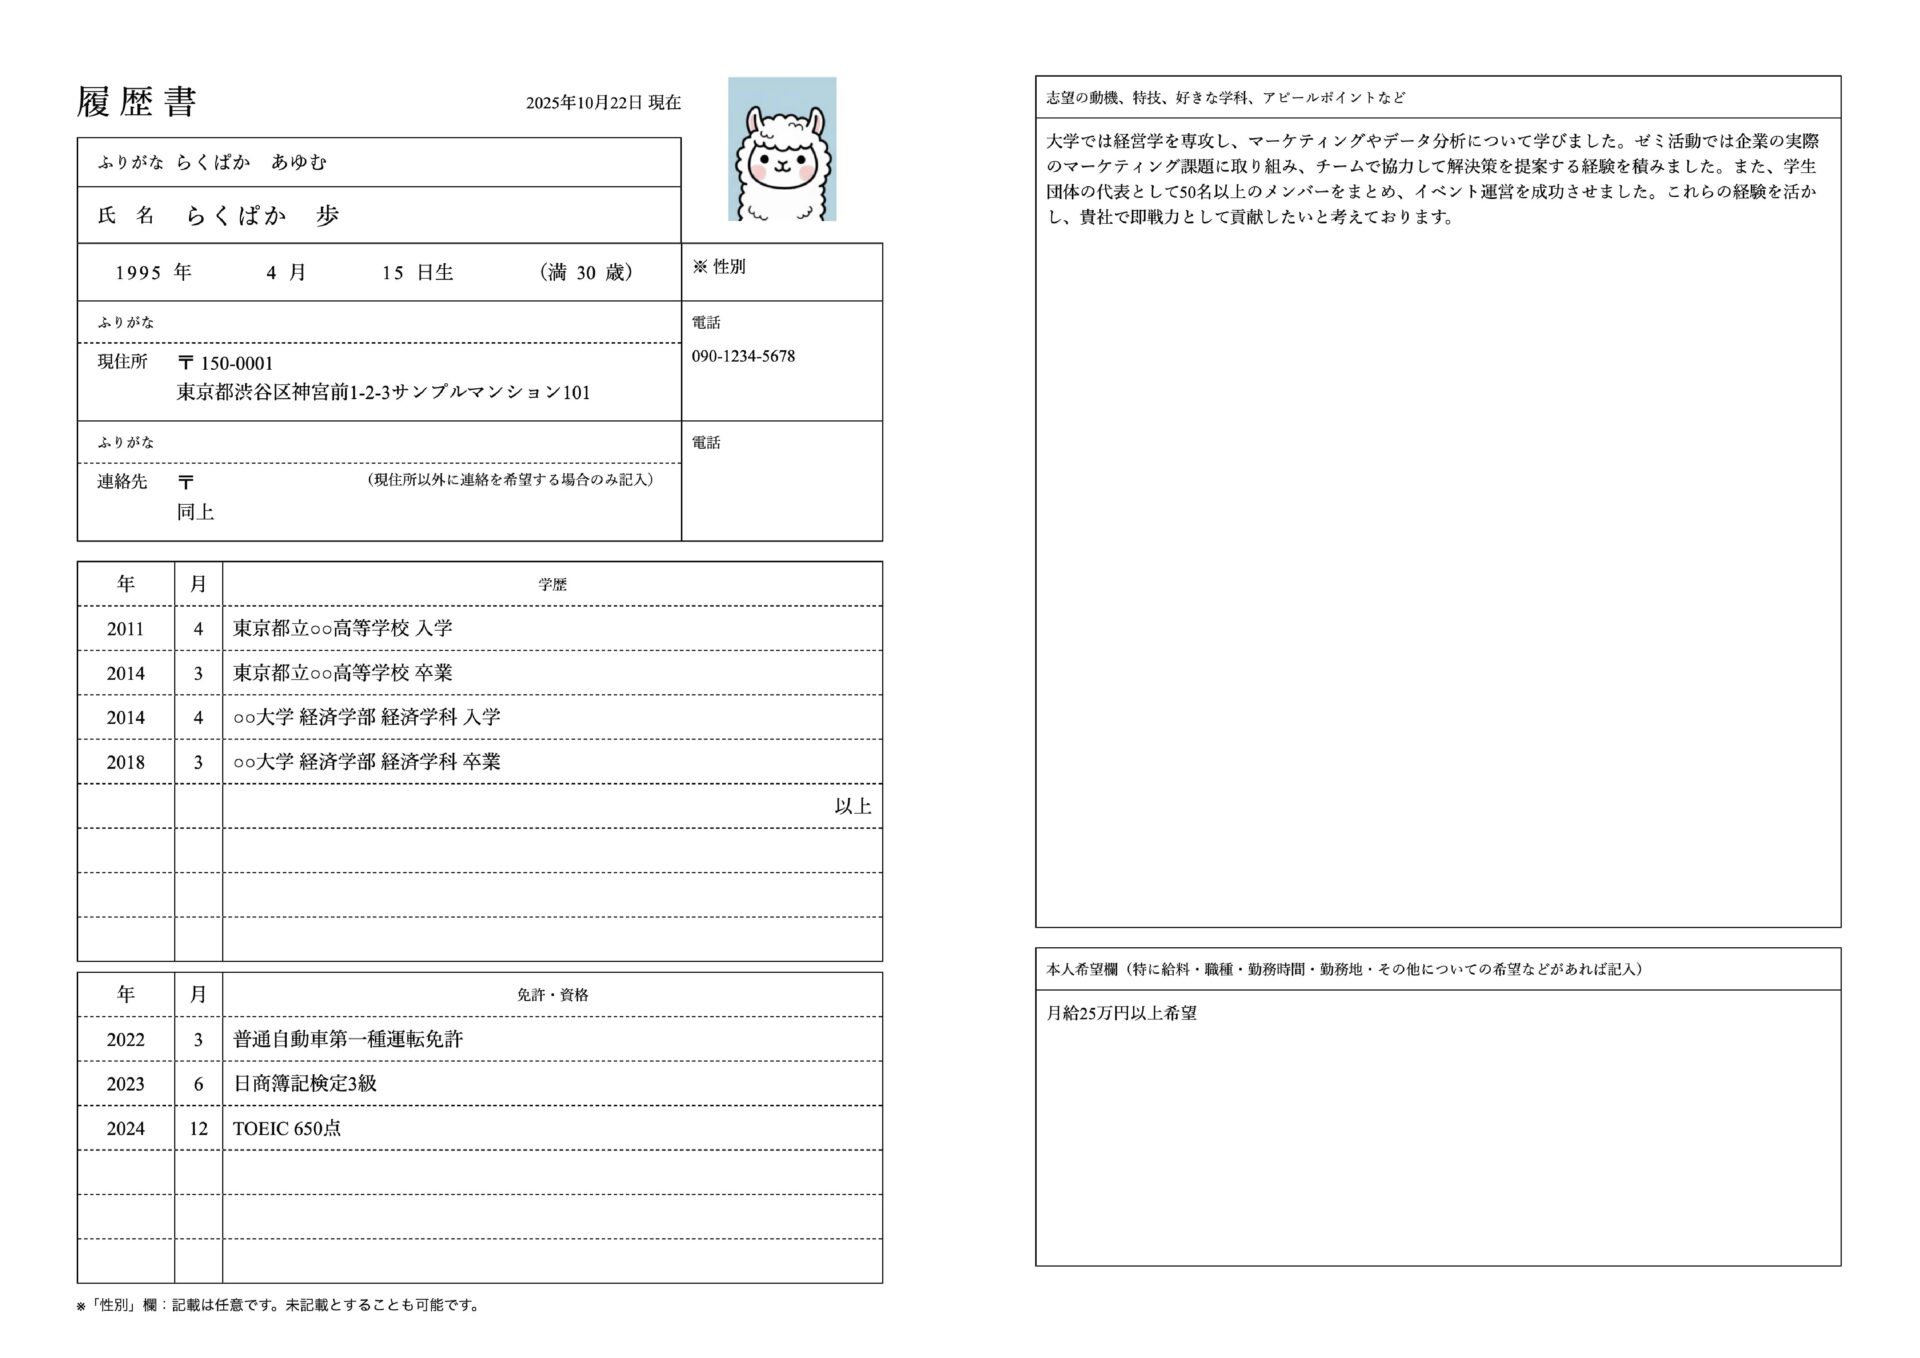 履歴書
2025年10月22日 現在
ふりがな らくぱか あゆむ
氏 名 らくぱか 歩
1995 年 4 月 15 日生 (満 30 歳)
※ 性別
ふりがな
現住所 〒 150-0001
東京都渋谷区神宮前1-2-3サンプルマンション101
電話
090-1234-5678
ふりがな
連絡先 〒 (現住所以外に連絡を希望する場合のみ記入)
同上
電話
年 月 学歴
2011 4 東京都立○○高等学校 入学
2014 3 東京都立○○高等学校 卒業
2014 4 ○○大学 経済学部 経済学科 入学
2018 3 ○○大学 経済学部 経済学科 卒業
以上
年 月 免許・資格
2022 3 普通自動車第一種運転免許
2023 6 日商簿記検定3級
2024 12 TOEIC 650点
※「性別」欄：記載は任意です。未記載とすることも可能です。
志望の動機、特技、好きな学科、アピールポイントなど
大学では経営学を専攻し、マーケティングやデータ分析について学びました。ゼミ活動では企業の実際
のマーケティング課題に取り組み、チームで協力して解決策を提案する経験を積みました。また、学生
団体の代表として50名以上のメンバーをまとめ、イベント運営を成功させました。これらの経験を活か
し、貴社で即戦力として貢献したいと考えております。
本人希望欄（特に給料・職種・勤務時間・勤務地・その他についての希望などがあれば記入）
月給25万円以上希望